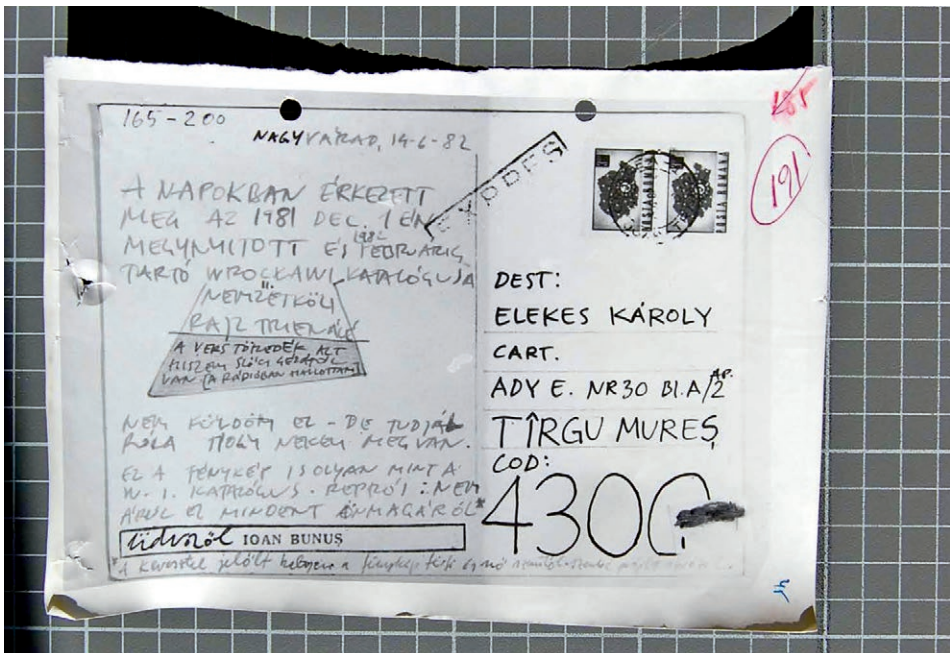 165-200
NAGYVÁRAD, 14-6-82
A NAPOKBAN ÉRKEZETT
MEG AZ 1981 DEC. 1 ÉN
MEGNYITOTT ÉS 1982 FEBRUÁRIG
TARTÓ WROCŁAWI KATALÓGUSA
NEMZETKÖZI
RAJZ TRIENÁLÉ
A VERS TÖREDÉK AZT
HISZEM
VAN (A RÁDIÓBAN HALLOTTAM)
NEM KÜLDÖM EL - DE TUDJÁL
RÓLA HOGY NEKEM MEGVAN.
EZ A FÉNYKÉP IS OLYAN MINT A
W-I. KATALÓGUS - REPRÓI: NEM
ÁRUL EL MINDENT ÖNMAGÁRÓL*
üdvözöl IOAN BUNUȘ
*A kereszttel jelölt helyeken a fénykép
EXPRES
POSTA ROMANA
191
DEST:
ELEKES KÁROLY
CART.
ADY E. NR30 Bl.A/AP.2
TÎRGU MUREȘ
COD:
4300